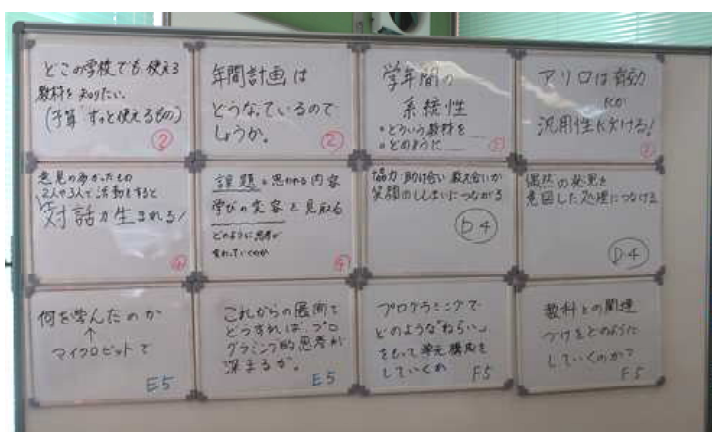 どこの学校でも使える
教材を知りたい。
(予算 ずっと使えるもの)
②
年間計画は
どうなっているので
しょうか。
②
学年間の
系統性
・どういう教材を
・どのように
②
アリロは有効
だが
汎用性に欠ける!
②
意見の
2人や3人で活動をすると
対話が生まれる!
④
課題と思われる内容
学びの変容を見取る
どのように思考が
変わっていくのか
④
協力 助け合い 教え合いが
笑顔
D4
偶然の発見を
意図した処理につなげる
D-4
何を学んだのか
↑
マイクロビットで
E5
これからの展開を
どうすれば、プロ
グラミング的思考が
深まるか。
E5
プログラミングで
どのような「ねらい」
をもって単元構成を
していくか
F5
教科との関連
づけをどのように
していくのか?
F5